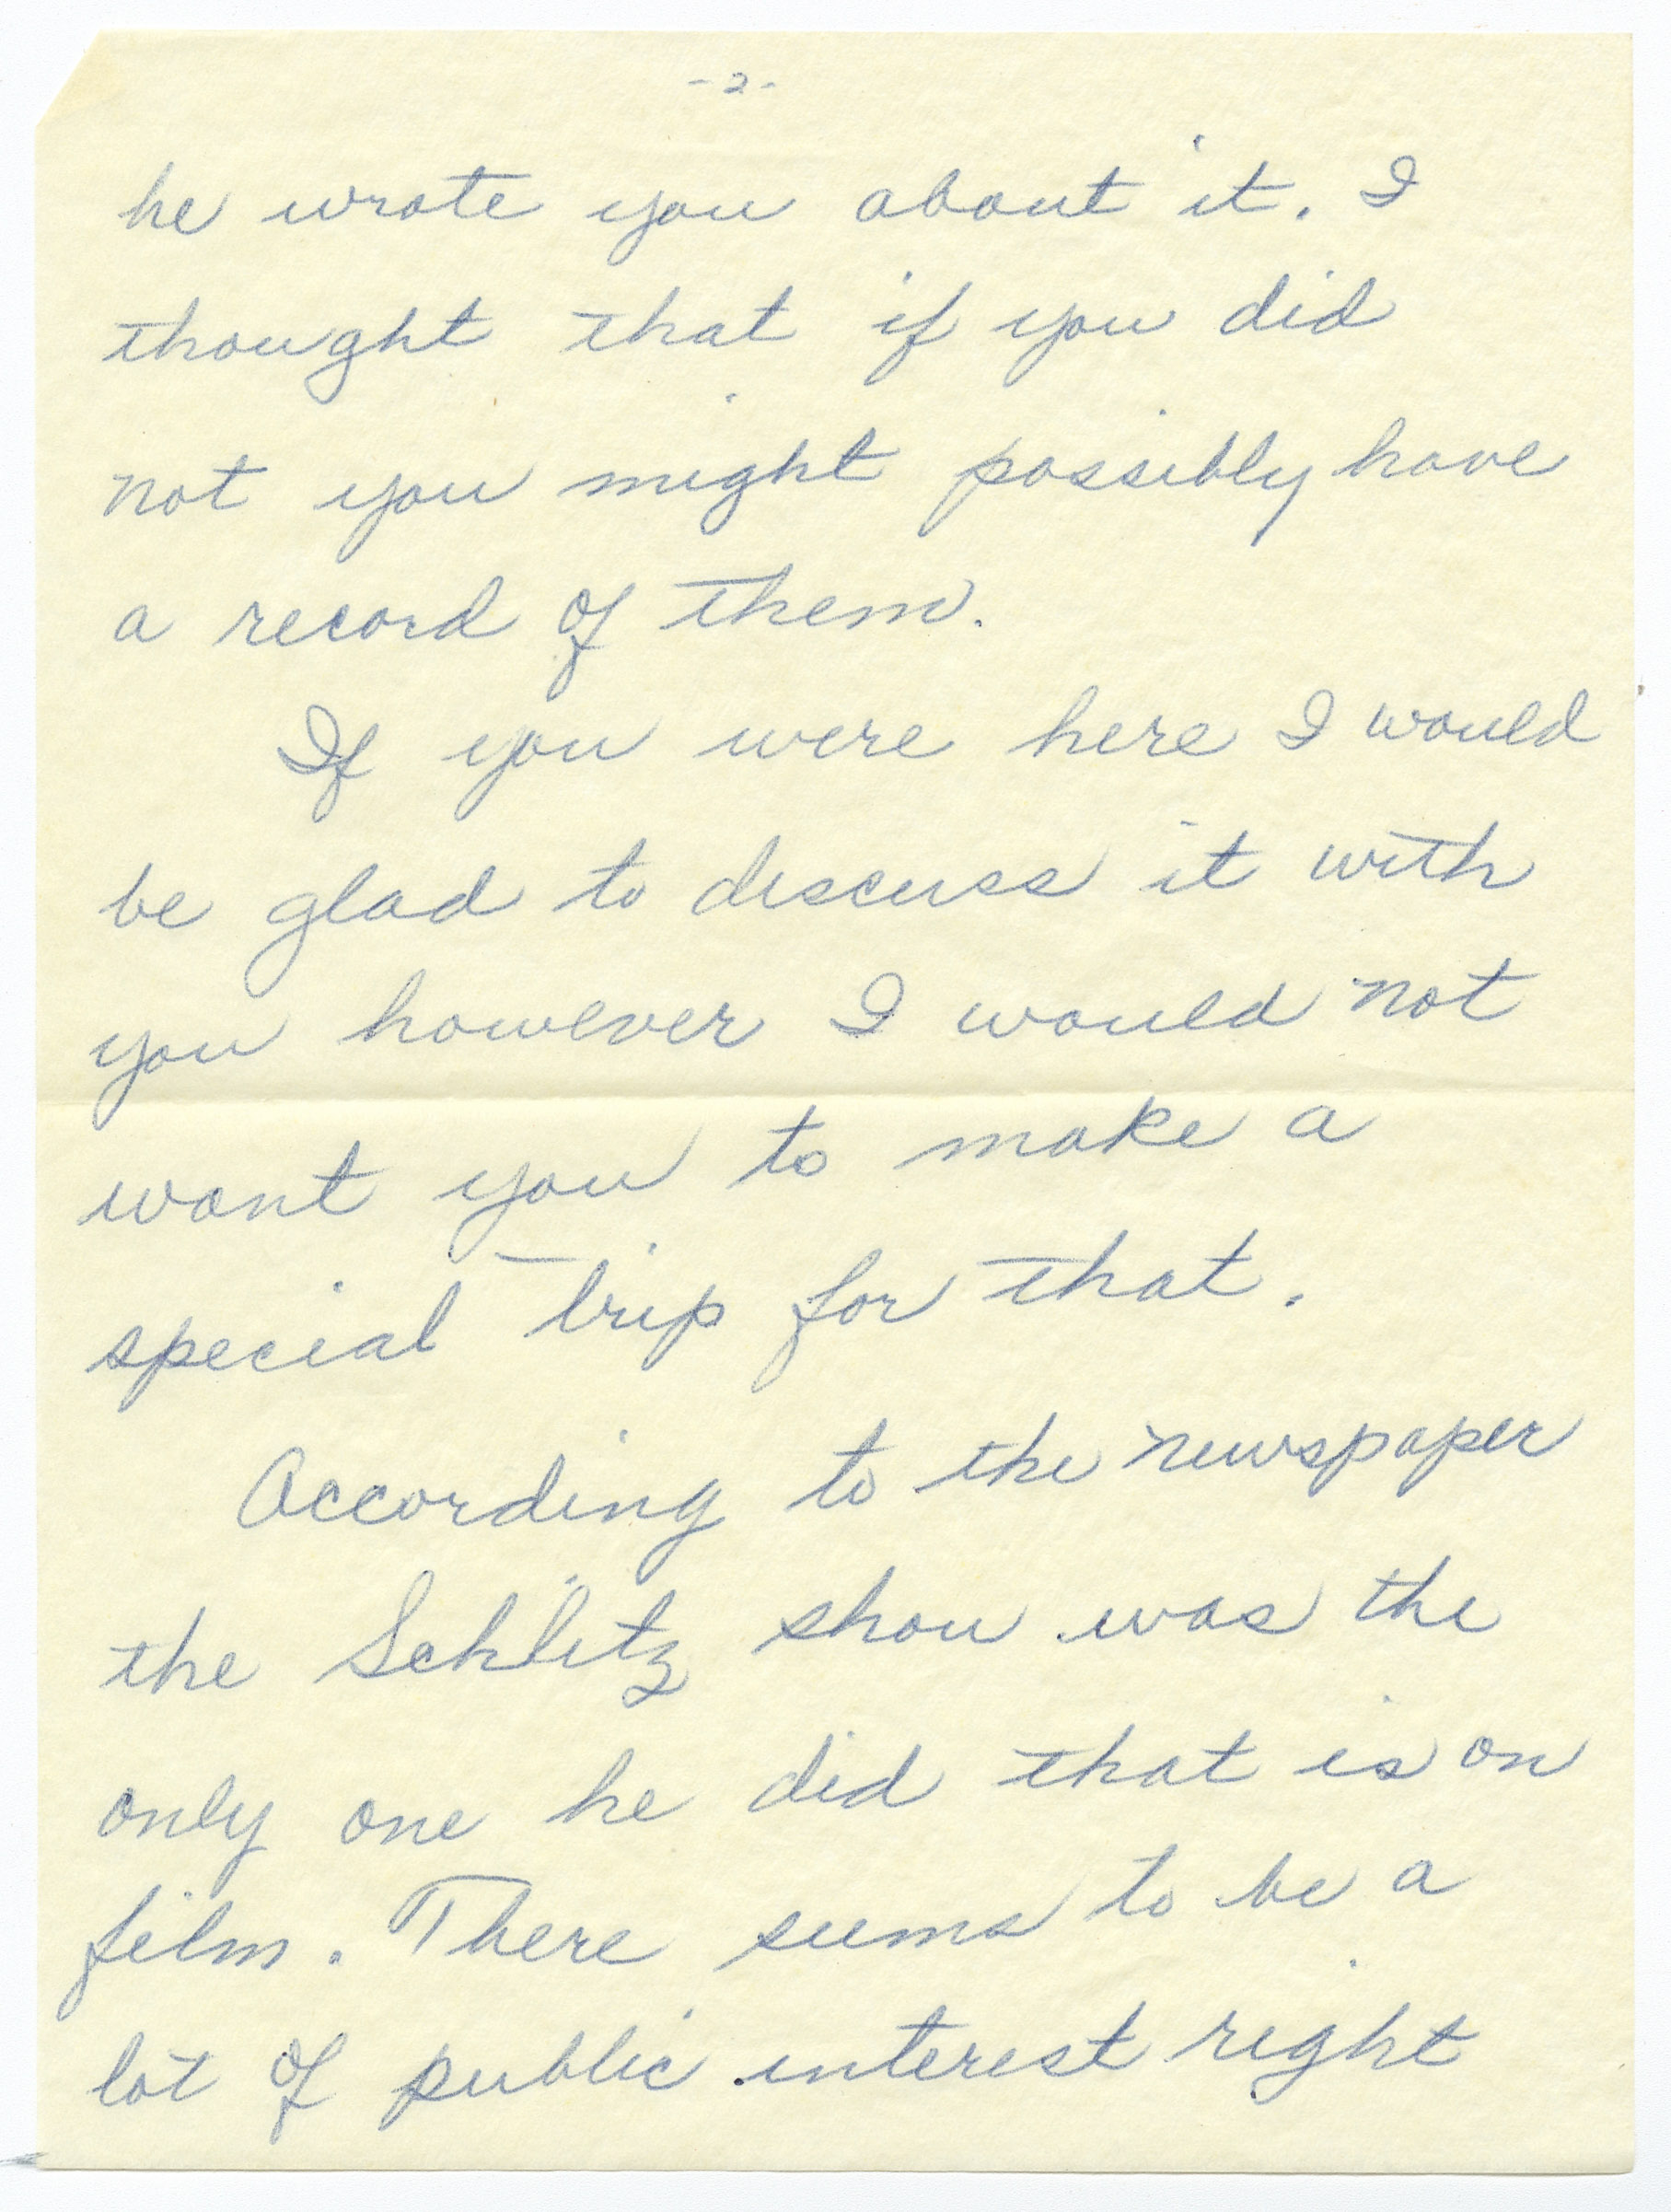 -2-
he wrote you about it. I
thought that if you did
not you might possibly have
a record of them.
If you were here I would
be glad to discuss it with
you however I would not
want you to make a
special trip for that.
According to the newspaper
the Schlitz show was the
only one he did that is on
film. There seems to be a
lot of public interest right